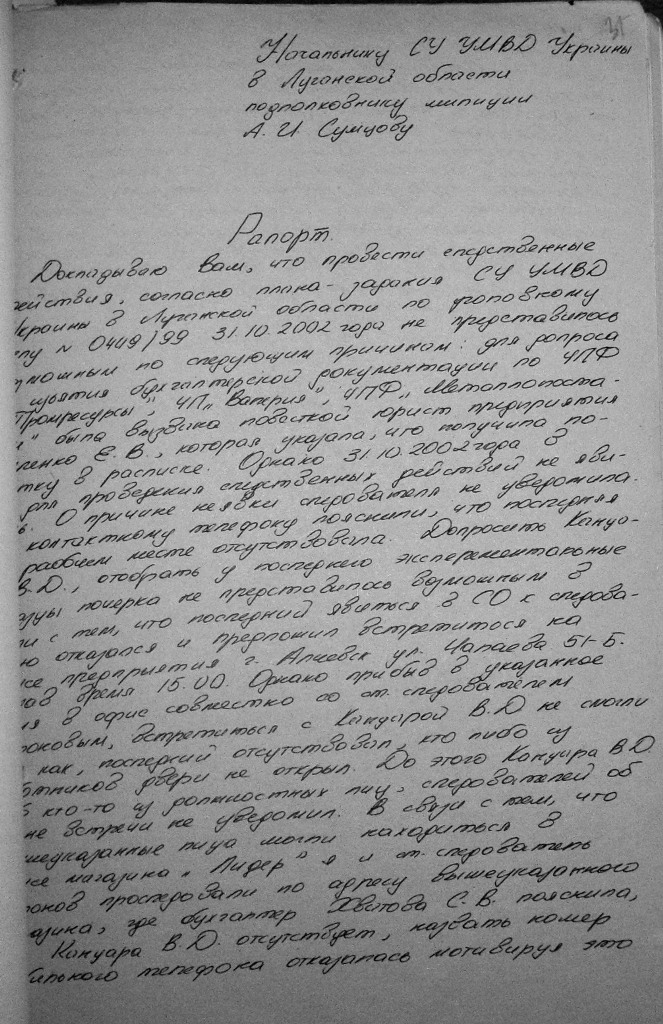 31
Начальнику СУ УМВД Украины
в Луганской области
подполковнику милиции
А. И Сумцову
Рапорт.
Докладываю Вам, что провести следственные
действия, согласно плана-задания СУ УМВД
Украины в Луганской области по уголовному
делу N 0449/99 31.10.2002 года не представилось
возможным по следующим причинам: для допроса
изъятия бухгалтерской документации по ЧПФ
"Промресурсы", ЧП "Валерия", ЧПФ "Металлопоста-
" была вызвана повесткой юрист предприятия
ленко Е. В., которая указала, что получила по-
тку в расписке. Однако 31.10.2002 года в
для проведения следственных действий не яви-
О причине неявки следователя не уведомила.
контактному телефону пояснили, что последняя
рабочем месте отсутствовала. Допросить Кануа-
В.Д., отобрать у последнего эксперементальные
зцы почерка не представилось возможным в
зи с тем, что последний явиться в СО к следова-
ю отказался и предложил встретиться на
се предприятия г. Алчевск ул. Чапаева 51-Б.
зав время 15.00. Однако прибыв в указанное
я в офис совместно со ст. следователем
оковым, встретиться с Кануарой В.Д не смогли
как, последний отсутствовал, кто либо из
отников двери не открыл. До этого Кануара В.Д.
кто-то из должностных лиц, следователей об
не встречи не уведомил. В связи с тем, что
шеуказанные лица могли находиться в
се магазина "Лидер" я и ст. следователь
онов проследовали по адресу вышеуказанного
азина, где бухгалтер Хвитова С. В. пояснила,
Кануара В.Д. отсутствует, назвать номер
бильного телефона отказалась мотивируя это